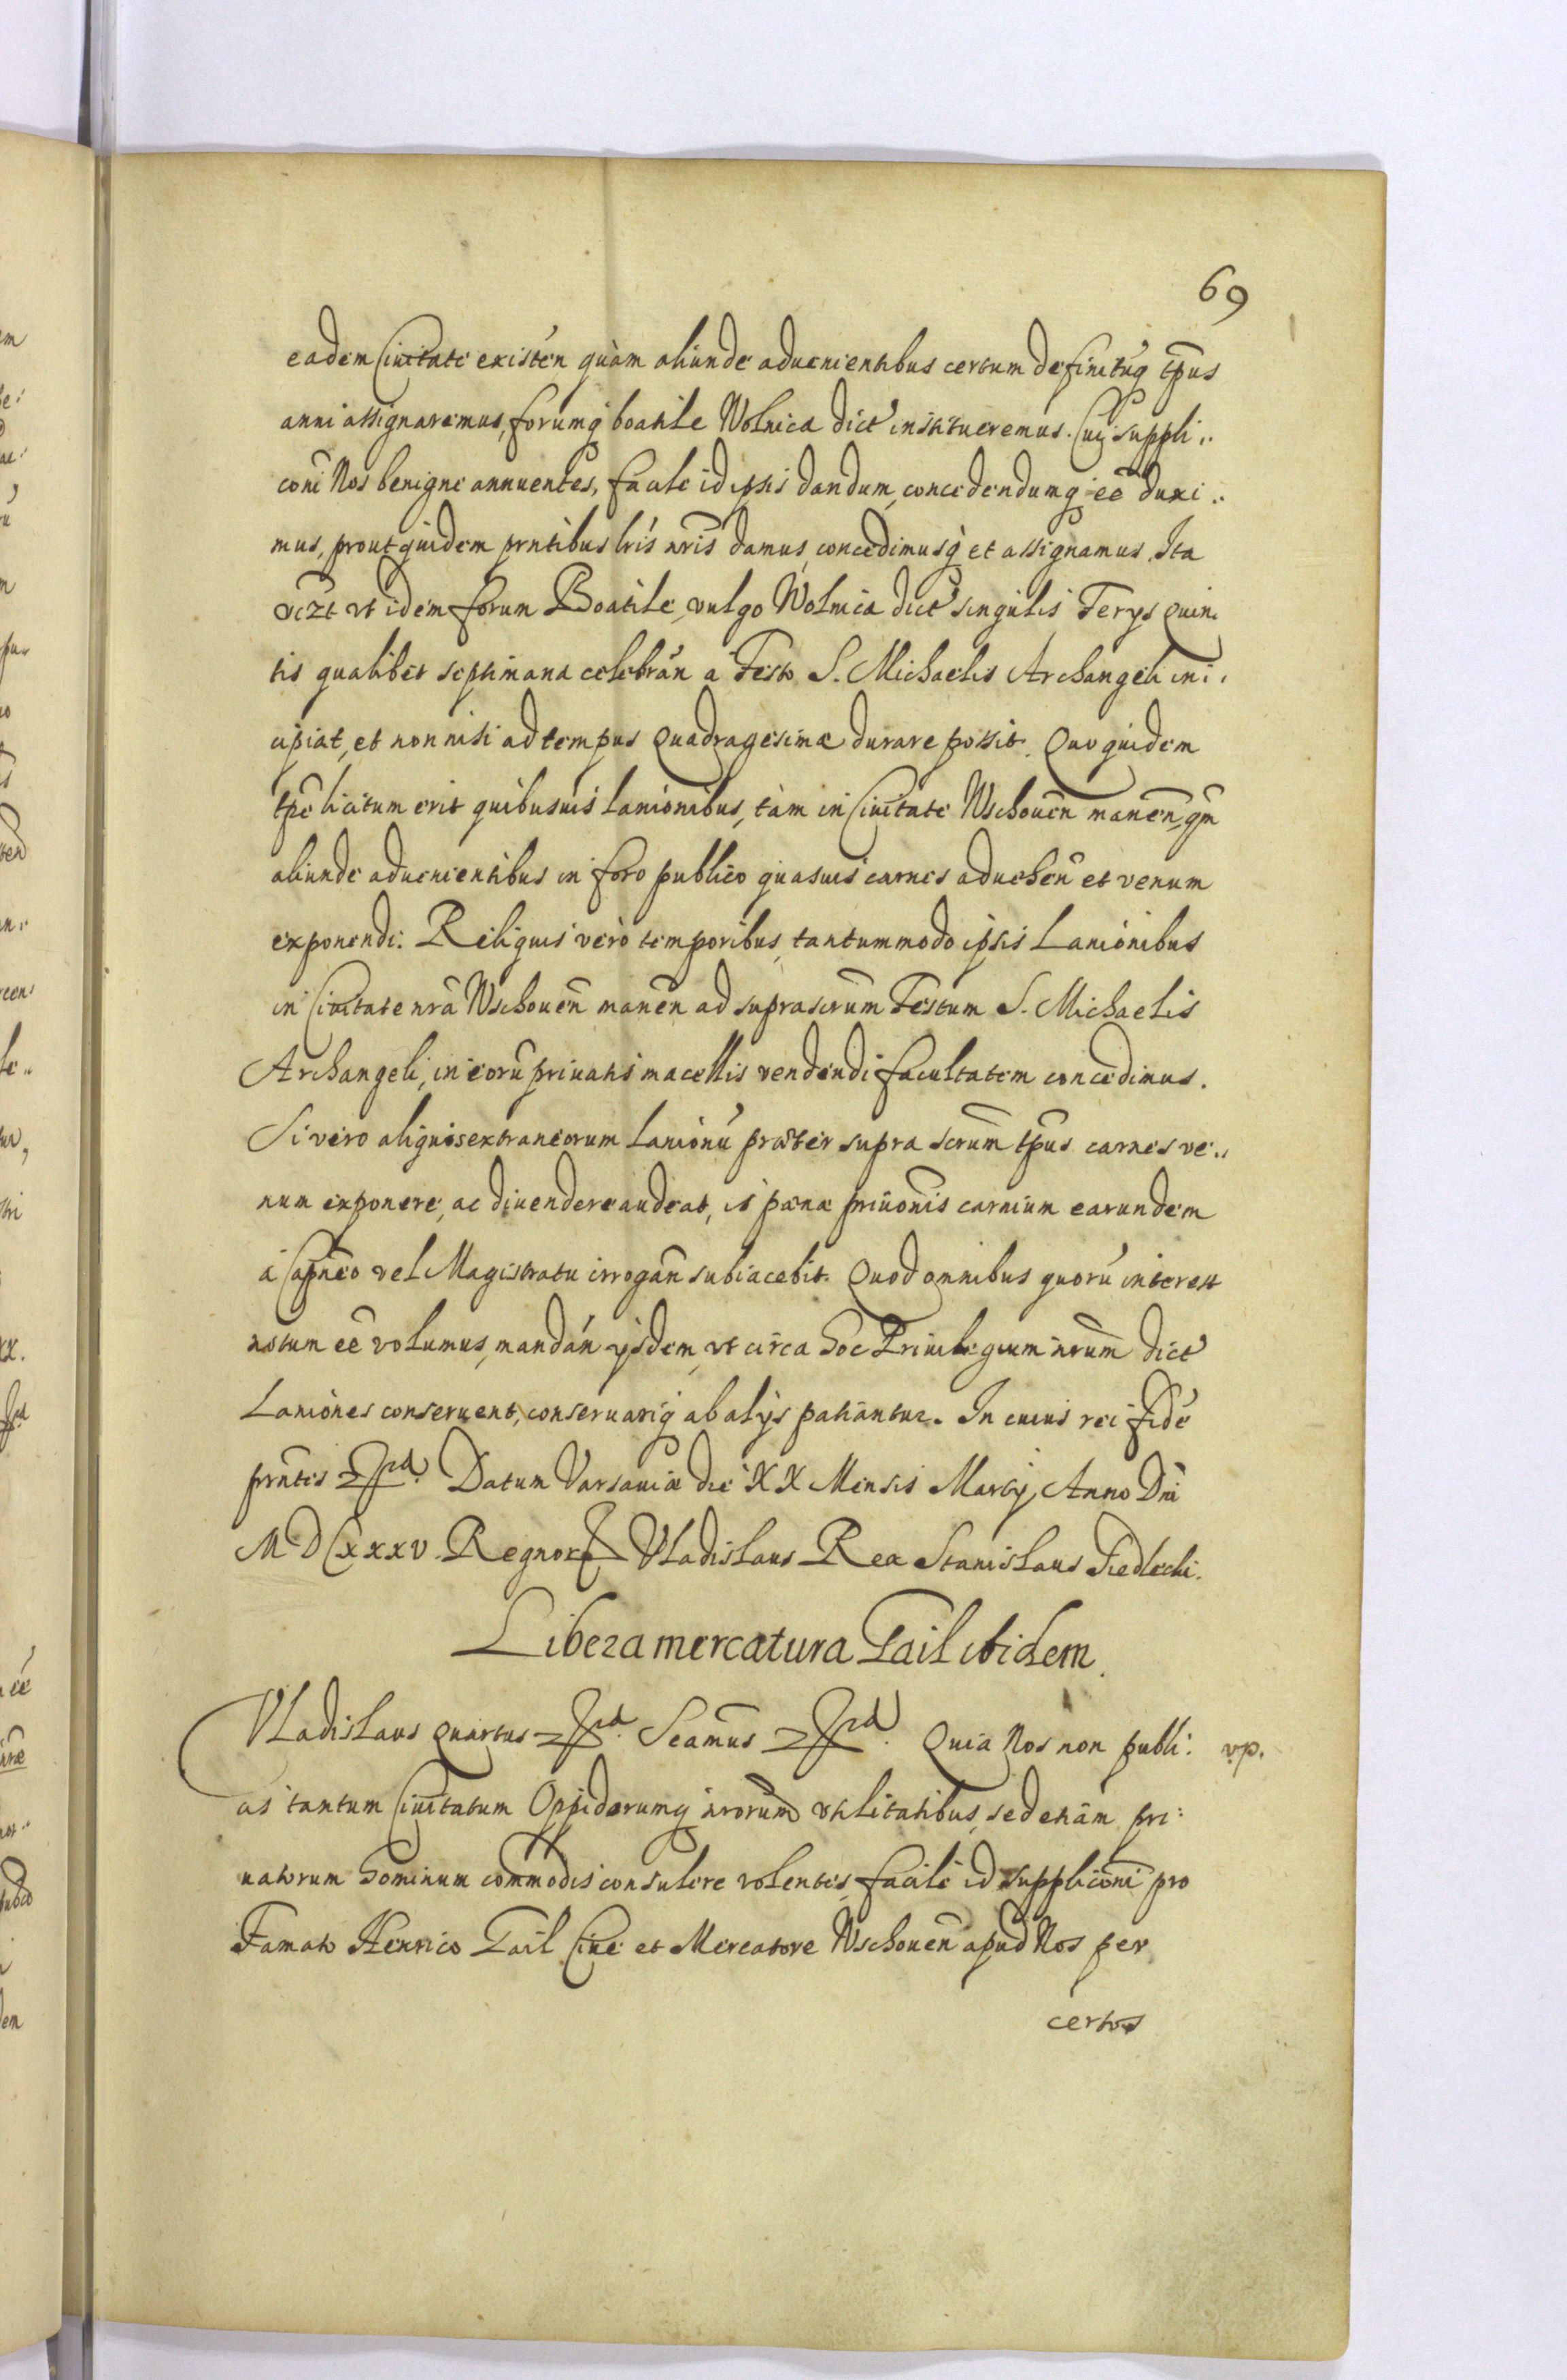 69
eadem Ciuitate existen̄ quàm aliunde aduenientibus certum definitūq tp̄us
anni assignaremus, forumq́ boatile Wolnica dict' institueremus. Cui suppli..
coni Nos benigne annuentes, facile id ipsis dandum, concedendumq́ eē duxi..
mus, prout quidem prntibus lris nris damus, concedimusq́ et assignamus. Ita
vizt vt idem forum Boatile, vulgo Wolnica dict' singulis Ferys quin
tis qualibet septimana celebrań a Festo S. Michaelis Archangeli ini..
cipiat, et non nisi ad tempus Quadragesimæ durare possit. Quo quidem
tp̄e licitum erit quibusuis Lanionibus, tàm in Ciuitate Wschouen̄ manen̄, qm̄
aliunde aduenientibus in foro publico quasuis carnes aduehen̄ et venum
exponendi. Reliquis vero temporibus, tantummodo ipsis Lanionibus
in Ciuitate nrā Wschouen̄ manen̄ ad suprascrūm Festum S. Michaelis
Archangeli, in eorū priuatis macellis vendendi facultatem concedimus.
Si vero aliquis extraneorum Lanionū præter supra scrūm tp̄us carnes ve..
num exponere, ac diuendere audeat, is pœnæ priuōnis carnium earundem
à Capn̄eo vel Magistratu irrogan̄ subiacebit. Quod omnibus quorū interest
notum eē volumus, mandań ysdem, vt circa hoc Priuilegium nrūm dict'
Laniones conseruent, conseruariq́ ab alijs patiantur. In cuius rei fidē
prn̄tes Datum Varsauiæ die XX Mensis Martij, Anno Dn̄i
MDCxxxv. Regnor Vladislaus Rex Stanislaus Siedlecki.
Libera mercatura Tail ibidem.
Vladislaus Quartus Seamūs Quia Nos non publi: vp.
cis tantum Ciuitatum Oppidorumq́ nrorūm vtilitatibus, sed etiām pri:
uatorum hominum com̄modis consulere volentes, facile id supplicōni pro
Famato Henrico Tail Ciue et Mercatore Wschouen̄ apud Nos per
certos